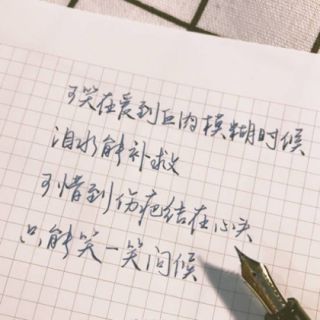 可笑在爱到巨肉模糊时候
泪水能补救
可惜到伤疤结在心头
只能笑一笑问候